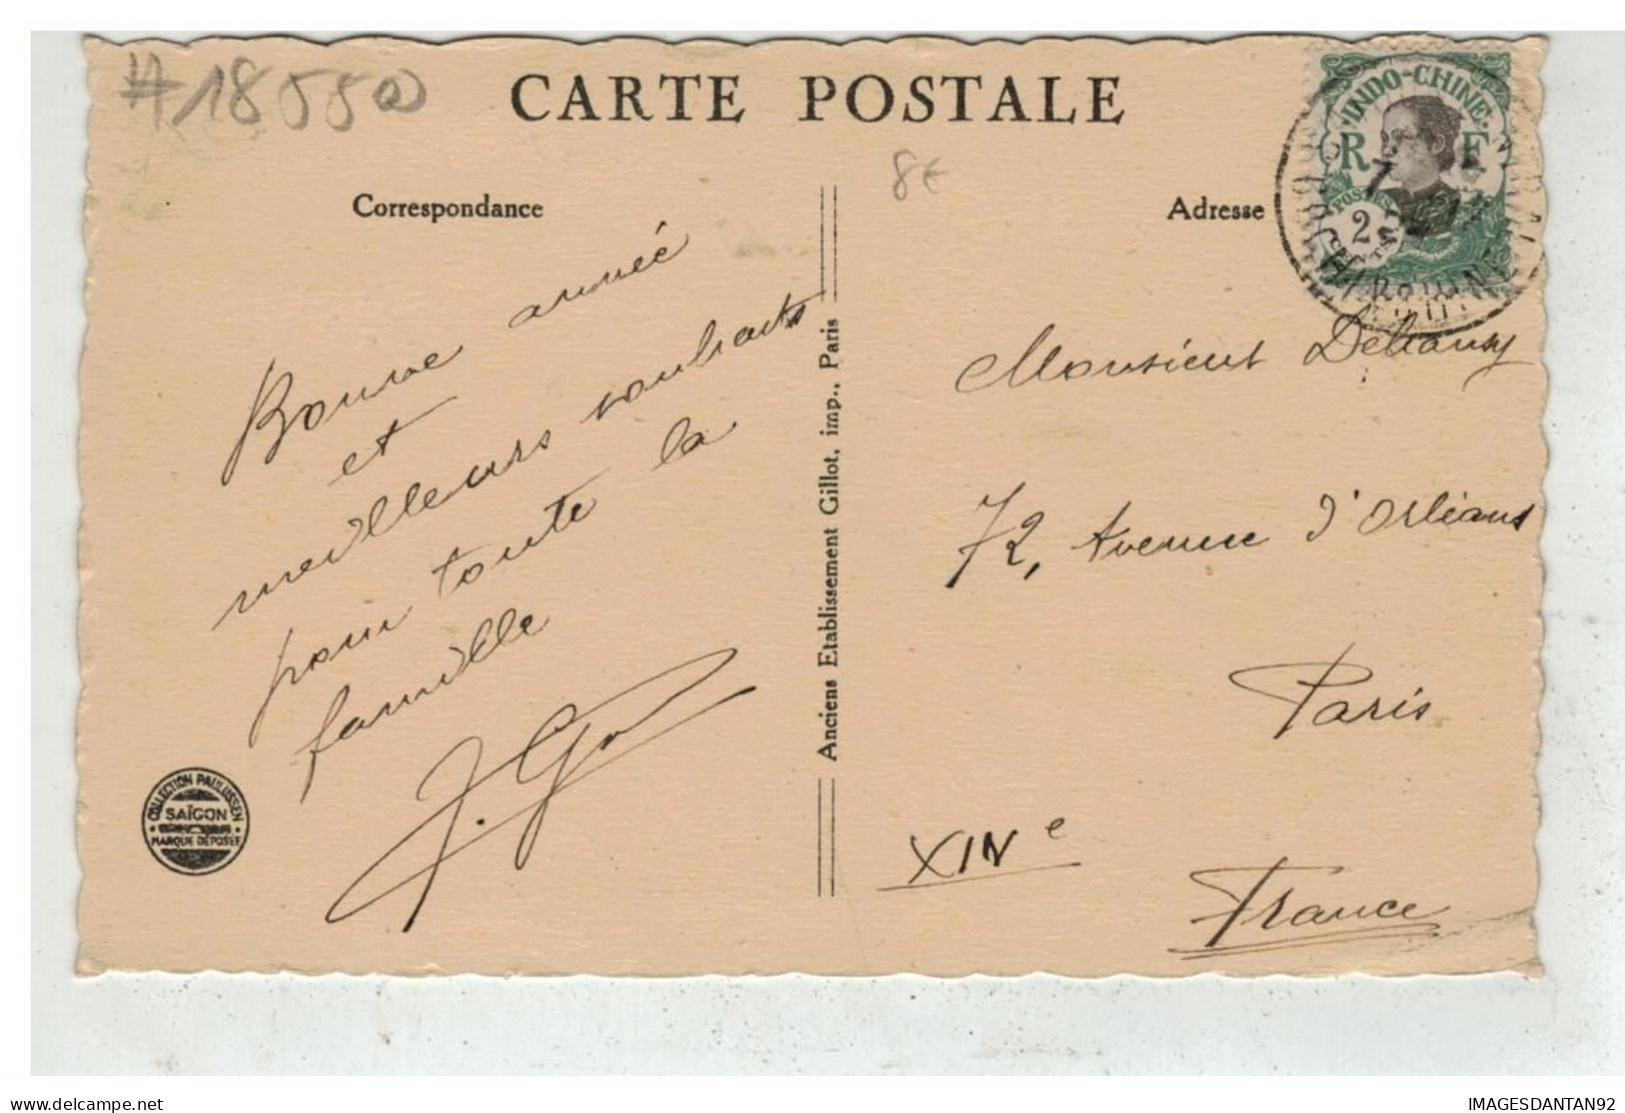 #18550
CARTE POSTALE
8€
Correspondance
Adresse
INDO-CHINE
R F
POSTES
2
COCHINCHINE
Bonne année
et
meilleurs souhaits
pour toute la
famille
Monsieur
72, Avenue d'Orléans
Paris
XIVe
France
Anciens Etablissement Gillot, imp., Paris
COLLECTION PAULUSSEN
SAÏGON
MARQUE DÉPOSÉE
delcampe.net
IMAGESDANTAN92